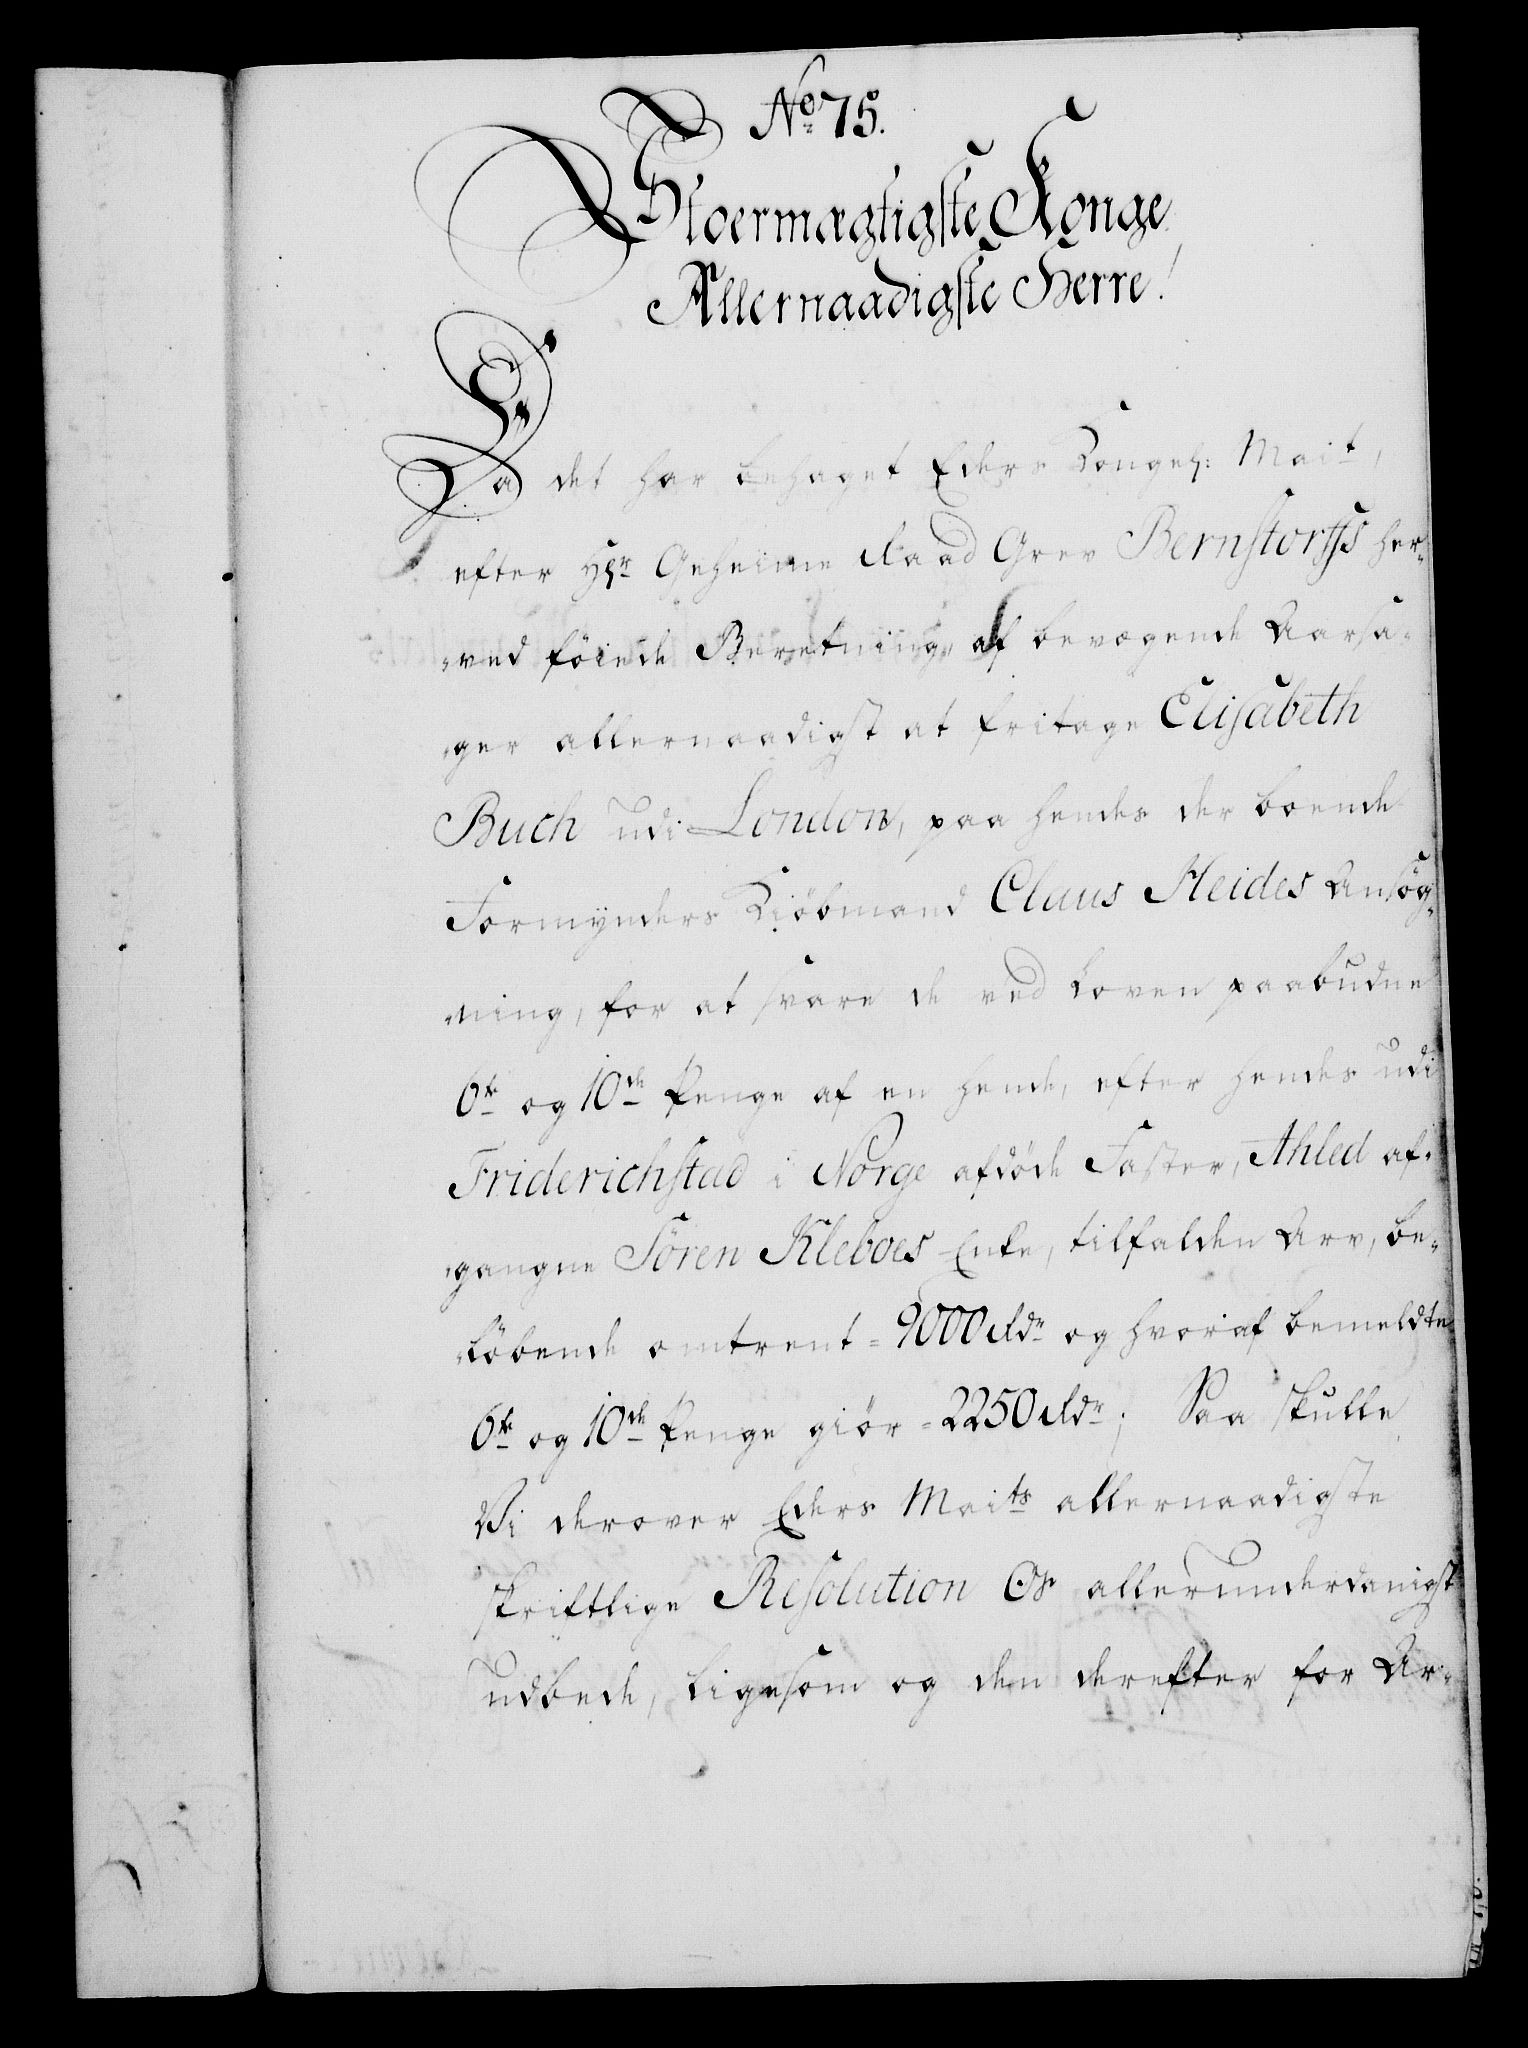 No 75.
Stoermægtigste Konge
Allernaadigste Herre!
Da det har behaget Eders Kongel: Mait,
efter Hr Geheime Raad Grev Bernstorffs her-
ved föiede Beretning, af bevægende Aarsa-
ger allernaadigst at fritage Elisabeth
Buch udi London, paa hendes der boende
Formynders Kiöbmand Claus Heides Ansög-
ning, for at svare de ved Loven paabudne
6te og 10de Penge af en hende, efter hendes udi
Friderichstad i Norge afdöde Faster, Ahled af-
gangne Sören Kleboes Enke, tilfalden Arv, be-
löbende omtrent = 9000 Rdr og hvoraf bemeldte
6te og 10de Penge giör = 2250 Rdr; Saa skulle
Vi derover Eders Maits allernaadigste
skriftlige Resolution Os allerunderdanigst
udbede, ligesom og den derefter for Ar-